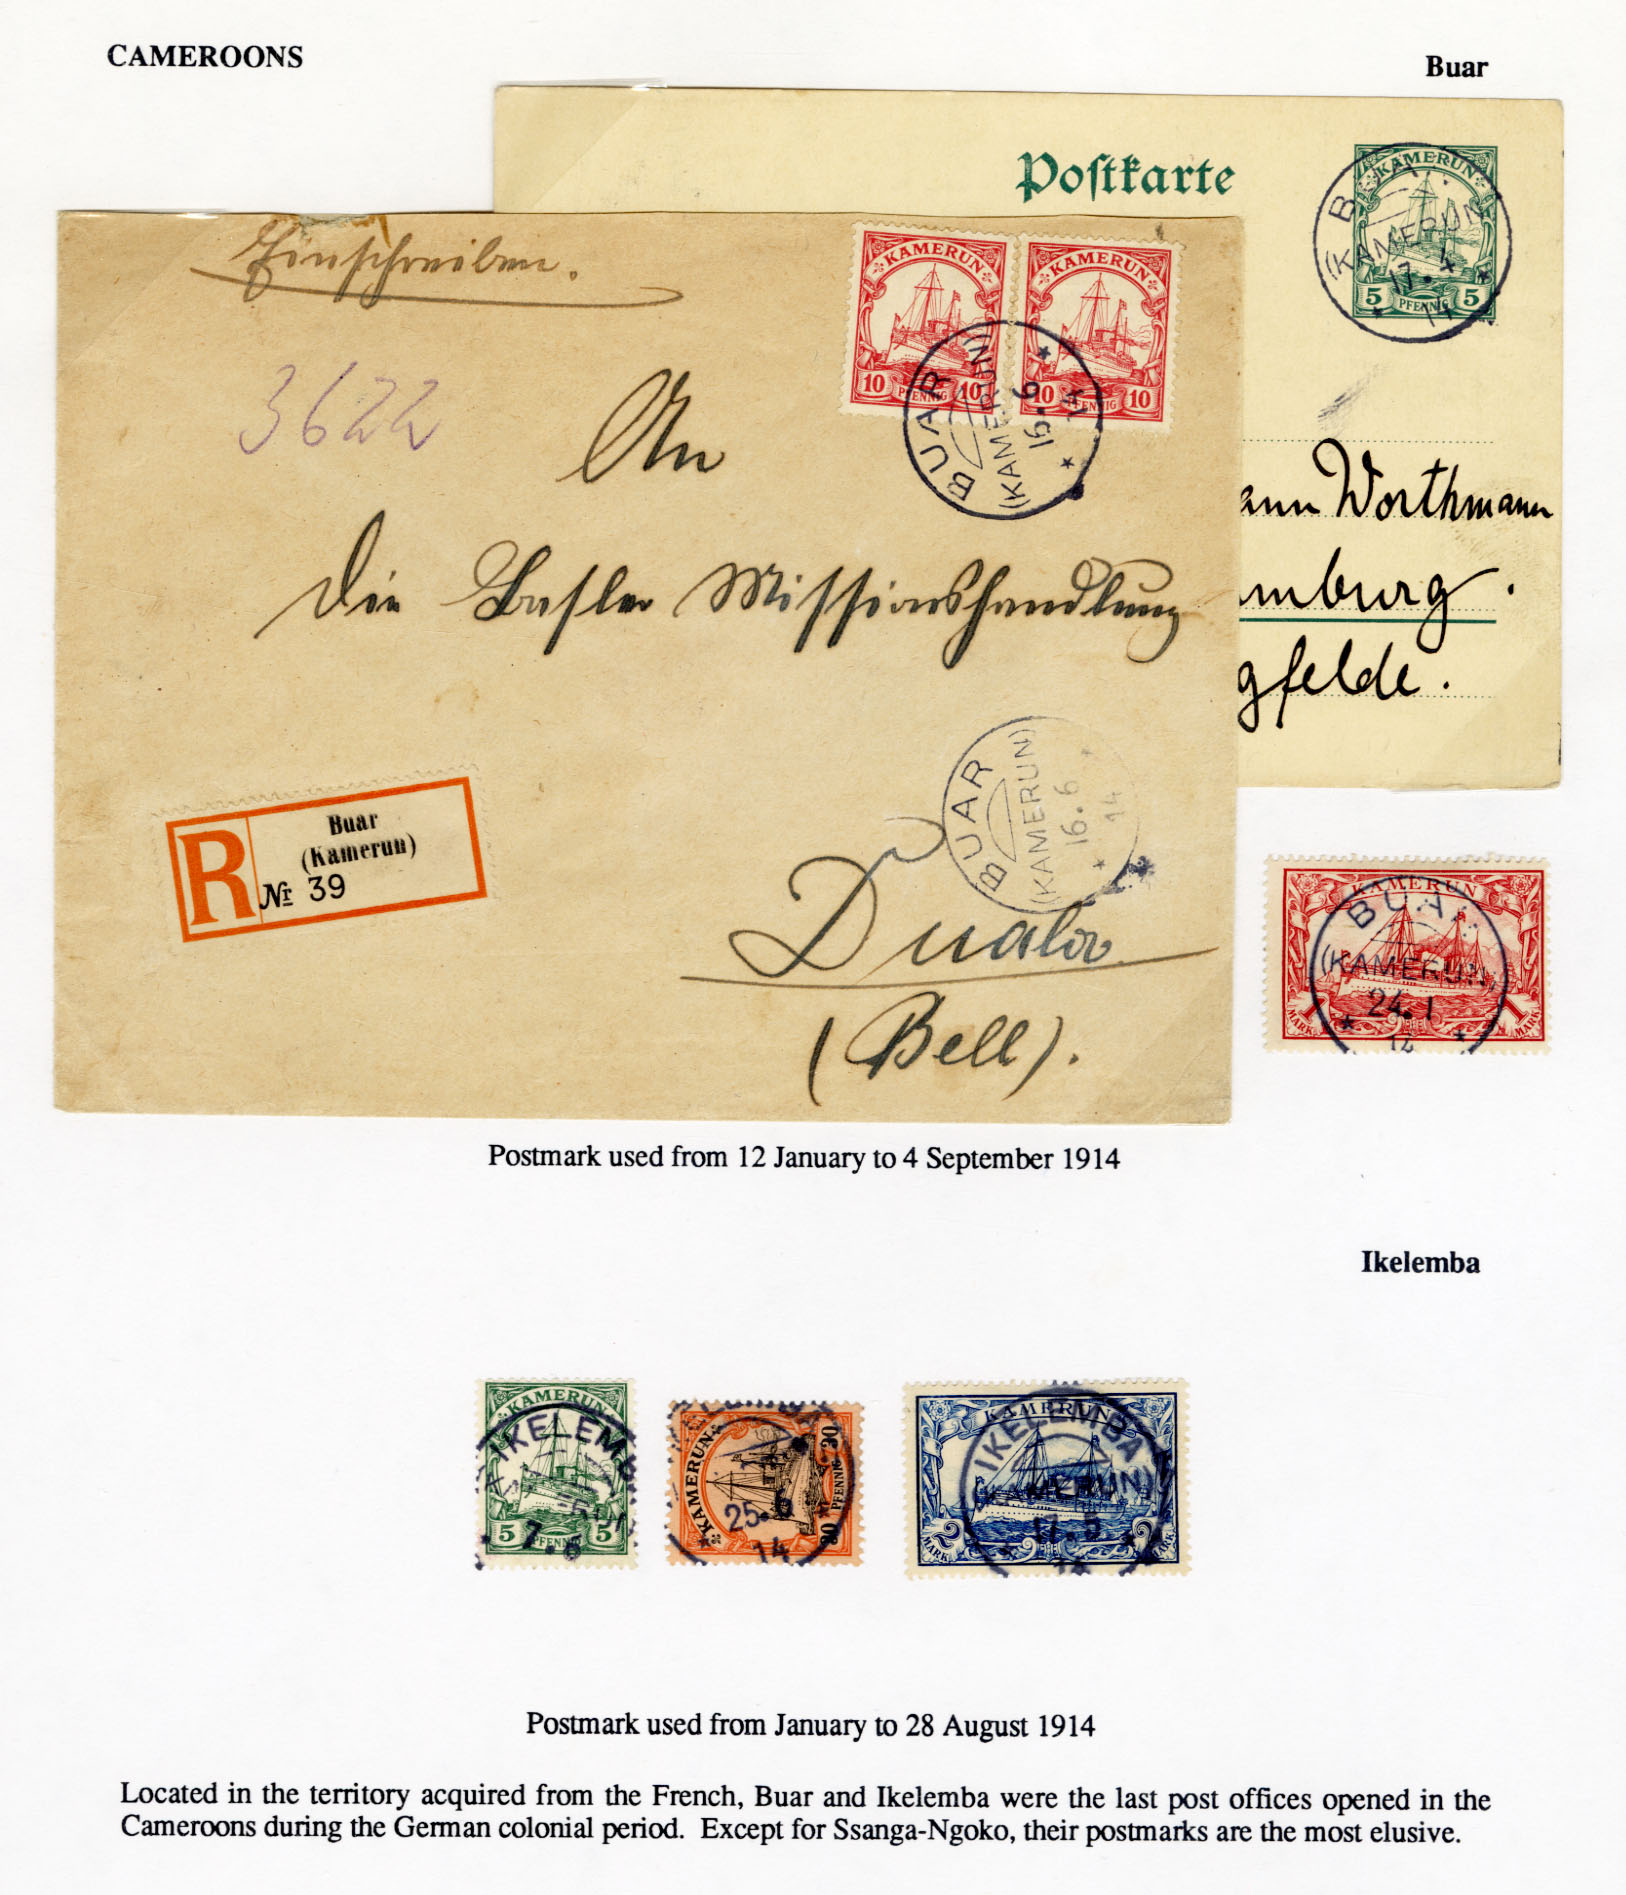 CAMEROONS
Buar
Postkarte
KAMERUN
5 PFENNIG 5
(KAMERUN
17.4
14
Einschreiben.
3622
KAMERUN
10 PFENNIG 10
KAMERUN
10 PFENNIG 10
BUAR
(KAMERUN)
16.6
14
An
die Basler Missionshandlung
ann Worthmann
mburg.
gfelde.
BUAR
(KAMERUN)
16.6
14
R
Buar
(Kamerun)
Nr 39
Duala
(Bell).
KAMERUN
1 MARK 1 MARK
BUA
(KAMERUN)
24.1
14
Postmark used from 12 January to 4 September 1914
Ikelemba
KAMERUN
5 PFENNIG 5
IKELEMB
7.6
KAMERUN
30 PFENNIG 30
25.
14
KAMERUN
2 MARK 2 MARK
IKELEMBA
KAMERUN)
17.5
Postmark used from January to 28 August 1914
Located in the territory acquired from the French, Buar and Ikelemba were the last post offices opened in the
Cameroons during the German colonial period. Except for Ssanga-Ngoko, their postmarks are the most elusive.